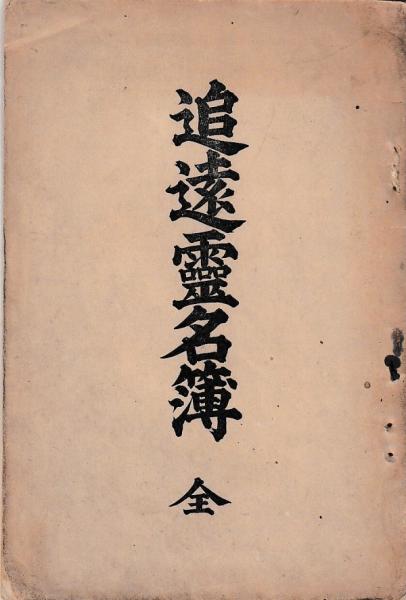 追遠靈名簿
全